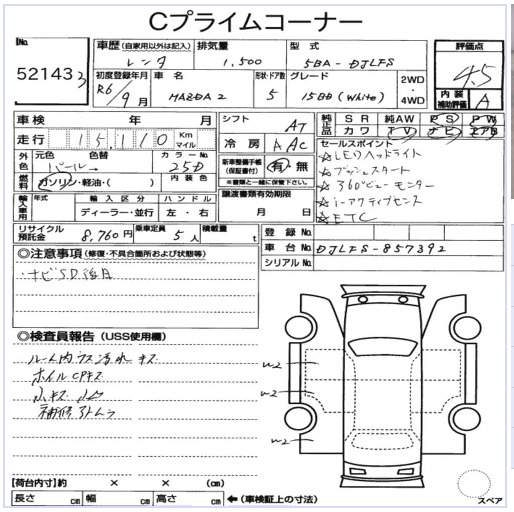 Cプライムコーナー
No. 52143
車歴 (自家用以外は記入) レンタ
排気量 1,500
型式 5BA-DJLFS
評価点 4.5
初度登録年月 R6/9月
車名 MAZDA2
形状・ドア数 5
グレード 15BD (White)
2WD・4WD
内装補助評価 A
車検 年 月
シフト AT
純正品 SR 純AW PS PW
カワ TV ナビ エアB
走行 15,110 Km マイル
冷房 AAC
セールスポイント
☆LEDヘッドライト
☆プッシュスタート
☆360°ビューモニター
☆i-アクティブセンス
☆ETC
外色 元色 パール 色替 カラーNo. 25D
新車整備手帳(保証書付) 有・無
※書類と一緒に保管下さい。
燃料 ガソリン・軽油・( ) 内装色
輸入車用 年式 輸入区分 ハンドル
ディーラー・並行 左・右
譲渡書類有効期限
月 日
リサイクル預託金 8,760円
乗車定員 5人
積載量 t
登録No.
車台No. DJLFS-857392
シリアルNo.
◎注意事項 (修復・不具合箇所および状態等)
・ナビSD後日
◎検査員報告 (USS使用欄)
ルーム内 汚れ キズ
ホイルCPキズ
小キズ
W2
W2
W2
【荷台内寸】約 × × (cm)
長さ cm 幅 cm 高さ cm ←(車検証上の寸法)
スペア